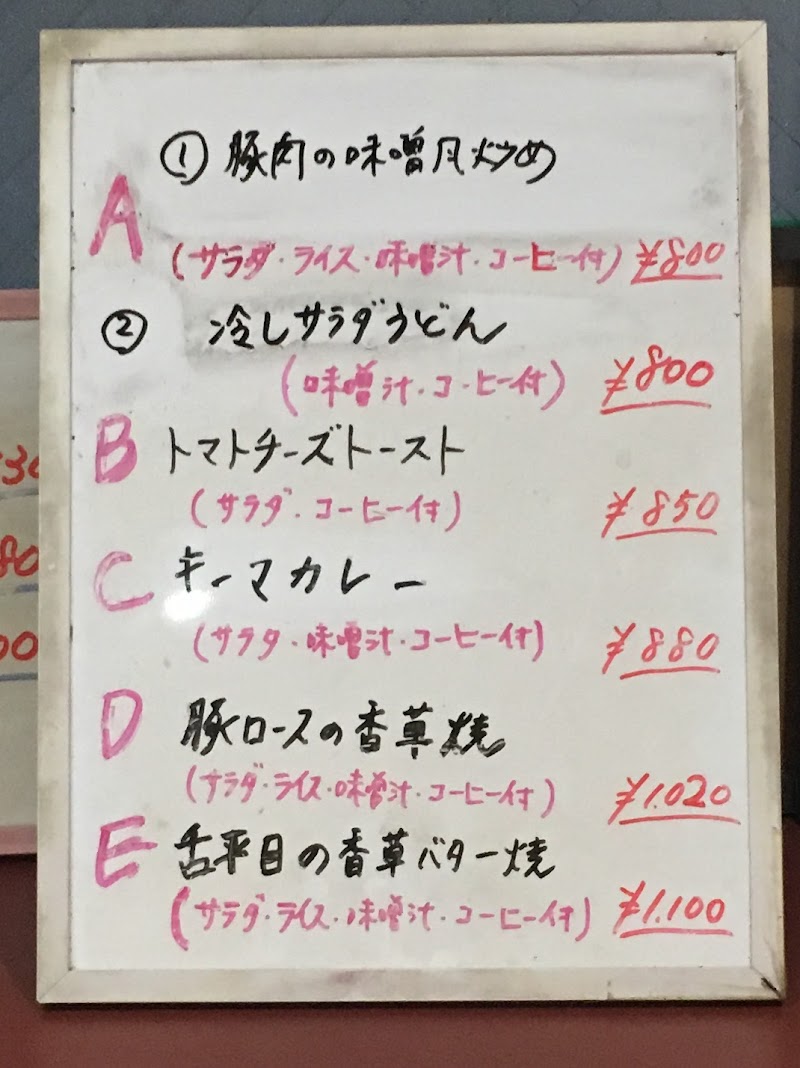 ① 豚肉の味噌風炒め
A
(サラダ・ライス・味噌汁・コーヒー付) ¥800
② 冷しサラダうどん
(味噌汁・コーヒー付) ¥800
B トマトチーズトースト
(サラダ・コーヒー付) ¥850
C キーマカレー
(サラダ・味噌汁・コーヒー付) ¥880
D 豚ロースの香草焼
(サラダ・ライス・味噌汁・コーヒー付) ¥1.020
E 舌平目の香草バター焼
(サラダ・ライス・味噌汁・コーヒー付) ¥1.100